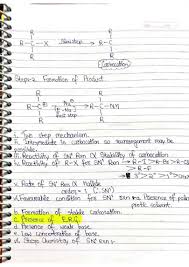 R R
R-C-X Slow step R-C
R R
Carbocation
Step-2 Formation of Product
R R
R-C Nu R-C-Nu
R R
i. Two step mechanism.
ii. Intermediate is carbocation so rearrangement may be possible.
iii. Reactivity of SN¹ Rxn ∝ Stability of carbocation
iv. Reactivity of SN¹ Rxn for R-X → R-I > R-Br > R-Cl > R-F
v. Rate of SN¹ Rxn ∝ halide
vi. Favourable condition for SN¹ Rxn is
a. Presence of polar protic solvent.
b. Formation of stable carbocation.
c. Presence of E.R.G.
d. Presence of weak base.
e. Low concentration of base.
Stereo Chemistry of SN¹ Rxn :-